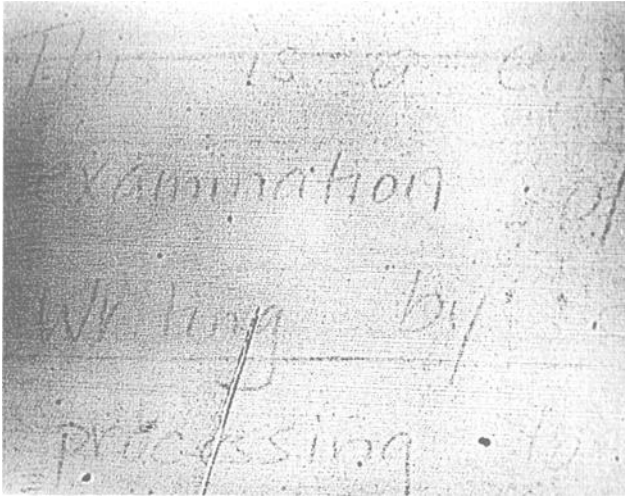 This is a
examination of
Writing by
processing to